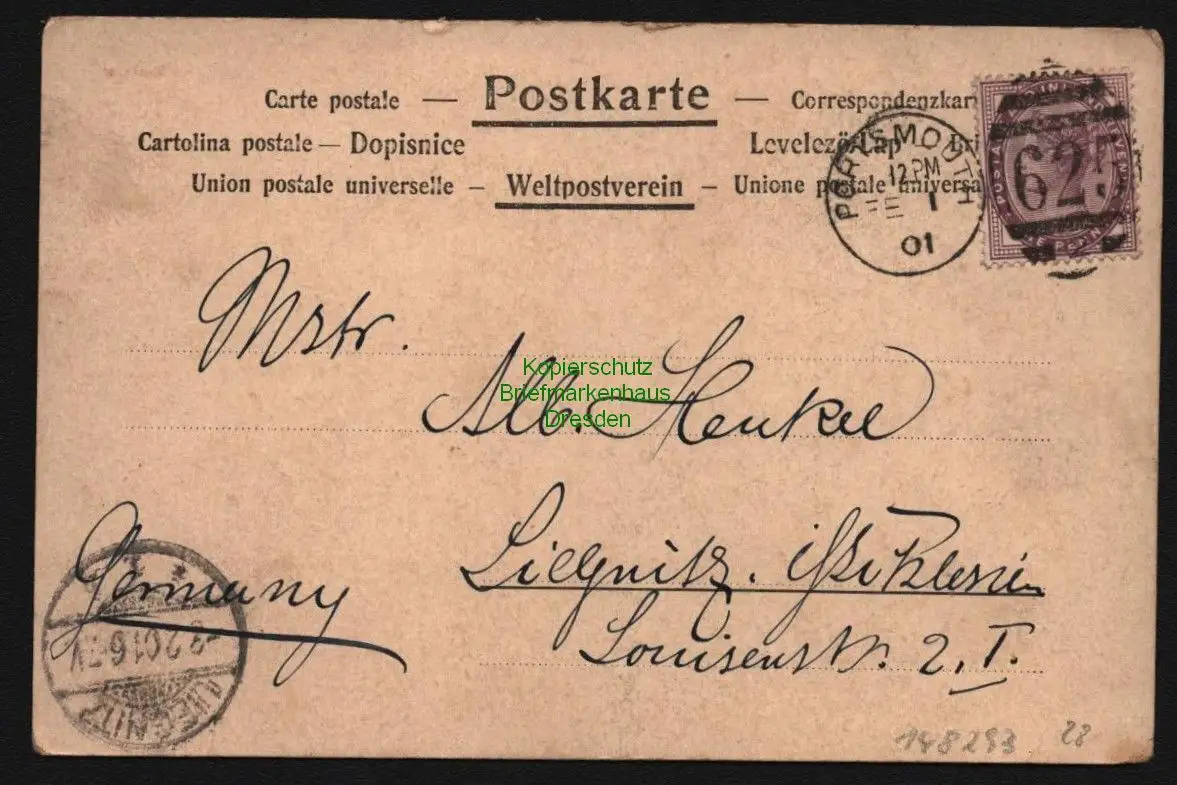 Carte postale — Postkarte — Correspondenzkar
Cartolina postale — Dopisnice Levelező-Lap Bri
Union postale universelle – Weltpostverein – Unione postale universa
PORTSMOUTH
12 PM
FE 1
01
625
Mstr.
Alb. Henkel
Kopierschutz
Briefmarkenhaus
Dresden
Liegnitz.
Germany
Louisenstr. 2, I.
LIEGNITZ
3.2.01.6-7V
148293 28